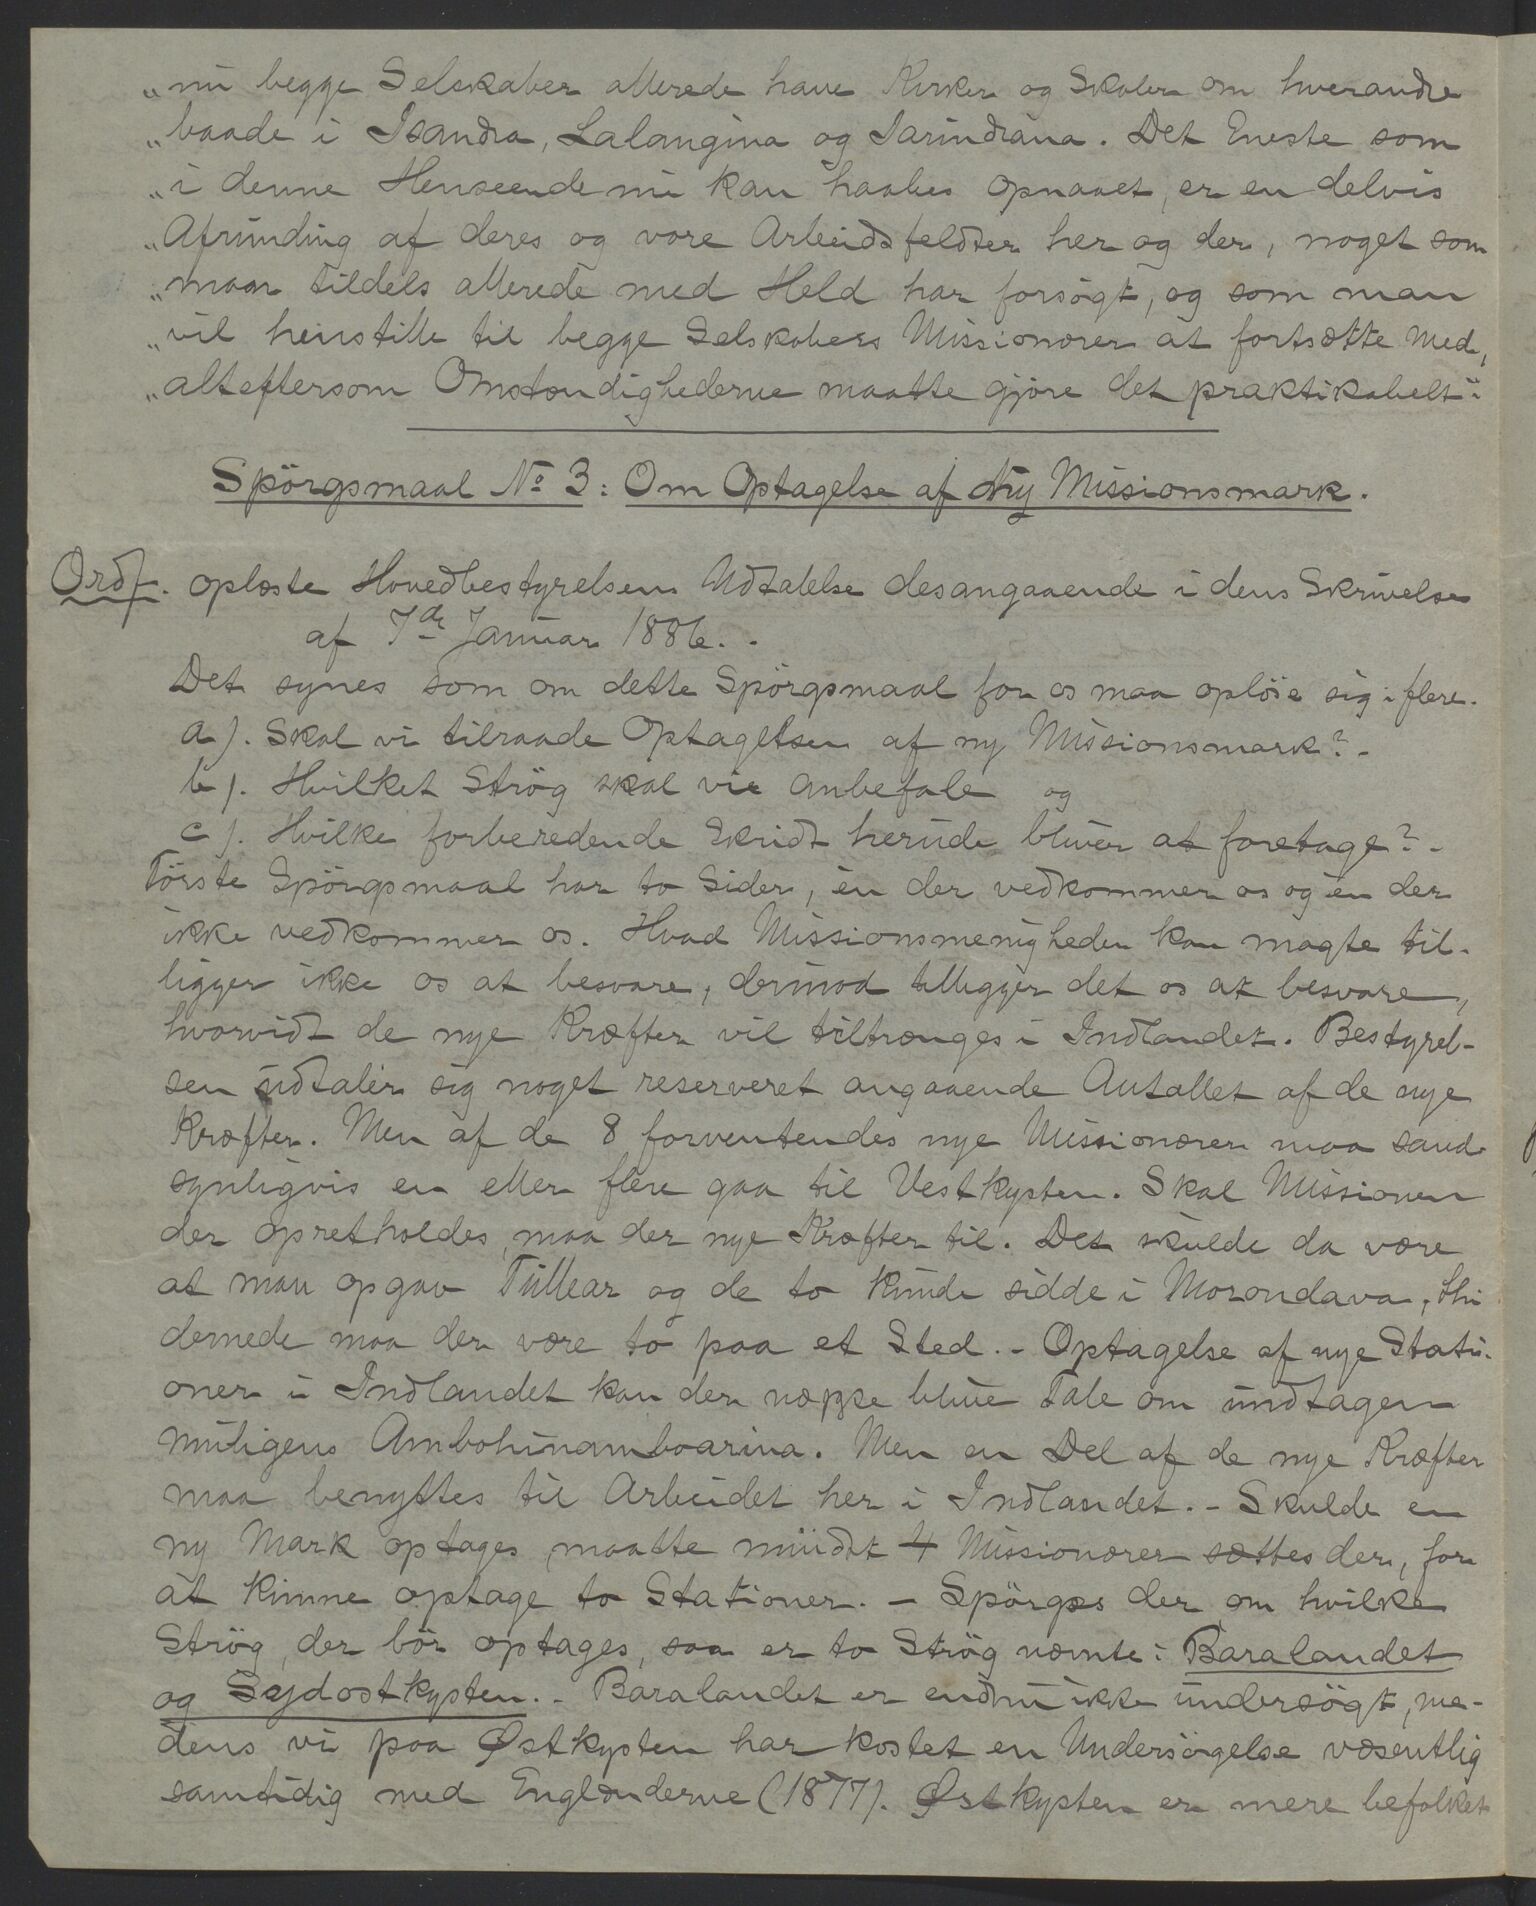 „nu begge Selskaber allerede have Kirker og Skoler om hverandre
„baade i Isandra, Lalangina og Iarindrana. Det Eneste som
„i denne Henseende nu kan haabes opnaaet, er en delvis
„Afrunding af deres og vore Arbeidsfeldter her og der, noget som
„man tildels allerede med Held har forsøgt, og som man
„vil henstille til begge Selskabers Missionærer at fortsætte med,
„alteftersom Omstændighederne maatte gjøre det praktikabelt“.
Spörgsmaal No 3: Om Optagelse af Ny Missionsmark.
Ordf. oplæste Hovedbestyrelsens Udtalelse desangaaende i dens Skrivelse
af 7de Januar 1886. -
Det synes som om dette Spörgsmaal for os maa oplöse sig i flere.
a). Skal vi tilraade Optagelsen af ny Missionsmark? -
b). Hvilket Strög skal vi anbefale og
c). Hvilke forberedende Skridt herude bliver at foretage? -
Förste Spörgsmaal har to Sider, én der vedkommer os og én der
ikke vedkommer os. Hvad Missionsmenigheden kan magte til-
ligger ikke os at besvare, derimod tilligger det os at besvare,
hvorvidt de nye Kræfter vil tiltrænges i Indlandet. Bestyrel-
sen udtaler sig noget reserveret angaaende Antallet af de nye
Kræfter. Men af de 8 forventendes nye Missionærer maa sand-
synligvis en eller flere gaa til Vestkysten. Skal Missionen
der opretholdes, maa der nye Kræfter til. Det skulde da være
at man opgav Tullear og de to kunde sidde i Morondava, thi
dernede maa der være to paa et Sted. - Optagelse af nye Stati-
oner i Indlandet kan der næppe blive Tale om undtagen
muligens Ambohinamboarina. Men en Del af de nye Kræfter
maa benyttes til Arbeidet her i Indlandet. - Skulde en
ny Mark optages, maatte mindst 4 Missionærer sættes der, for
at kunne optage to Stationer. - Spörges der om hvilke
Strög, der bör optages, saa er to Strög nævnte: Baralandet
og Sydostkysten. - Baralandet er endnu ikke undersögt, me-
dens vi paa Østkysten har kostet en Undersögelse væsentlig
samtidig med Englænderne (1877). Østkysten er mere befolket